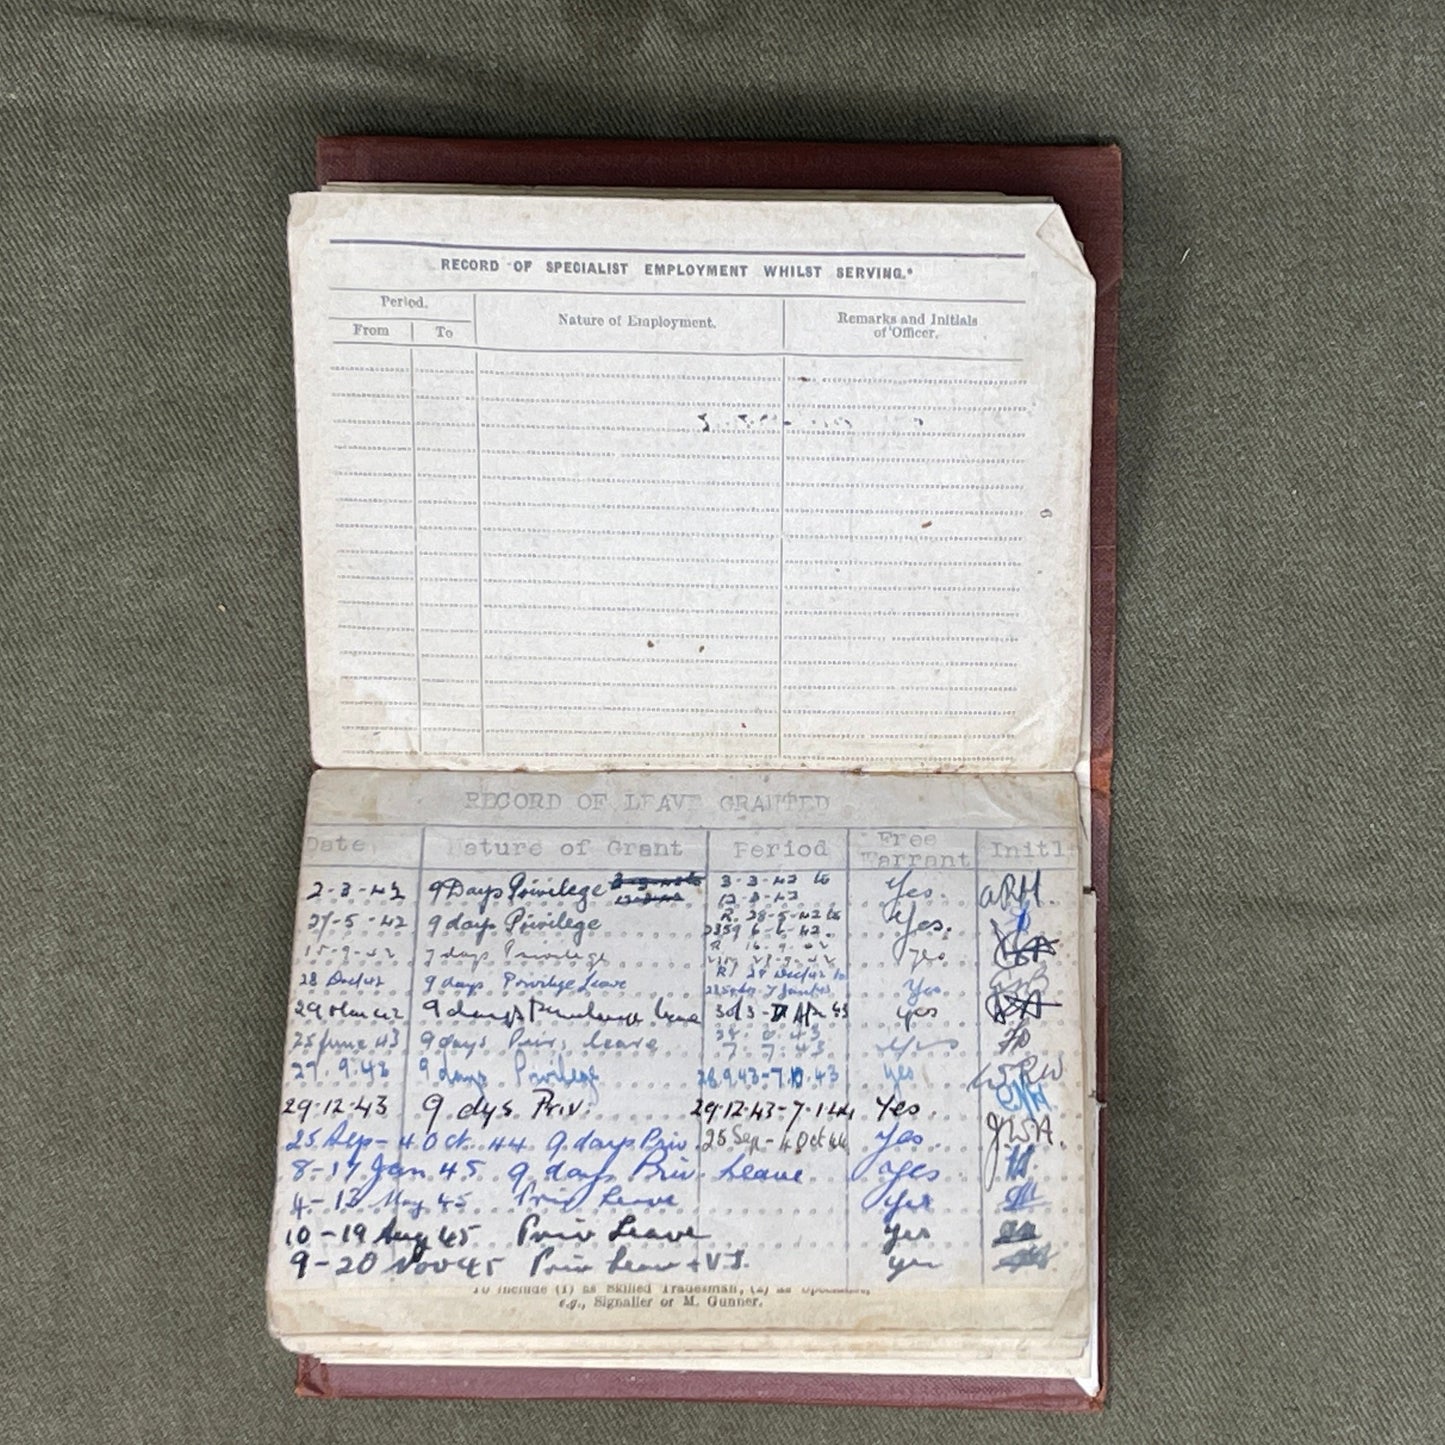 RECORD OF SPECIALIST EMPLOYMENT WHILST SERVING.*
Period.
Nature of Employment.
Remarks and Initials
of Officer.
From To
9
RECORD OF LEAVE GRANTED
Date Nature of Grant Period Free Warrant Initl
2-3-42 9 Days Privilege 3-3-42 to Yes. ARH.
27-5-42 9 days Privilege R. 28-5-42 to Yes.
2359 6-6-42.
15-9-42 7 days Privilege R 16.9.42 yes
28 Dec 42 9 days Privilege Leave R/ 29 Dec 42 to Yes
7 Jan 43
29 Mar 9 days Privilege leave 30/3 - Apr 43 yes
25 June 43 9 days Priv, leave
7. 7. 43
27. 9. 43 9 days Privilege 28.9.43-7.10.43 yes
29.12.43 9 dys Priv. 29.12.43-7.1.44 Yes.
25 Sep - 4 Oct. 44 9 days Priv. 25 Sep - 4 Oct 44 yes. JWH.
8-17 Jan 45 9 days Priv. Leave yes
4-13 May 45 Priv Leave yes
10-19 Aug 45 Priv Leave yes
9-20 Nov 45 Priv Leave + V.J. yes
To include (1) as Skilled Tradesman, (2) as Specialist,
e.g., Signaller or M. Gunner.